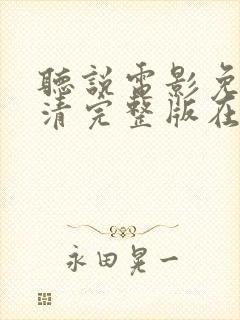 聽說電影免
清完整版在
永田晃一